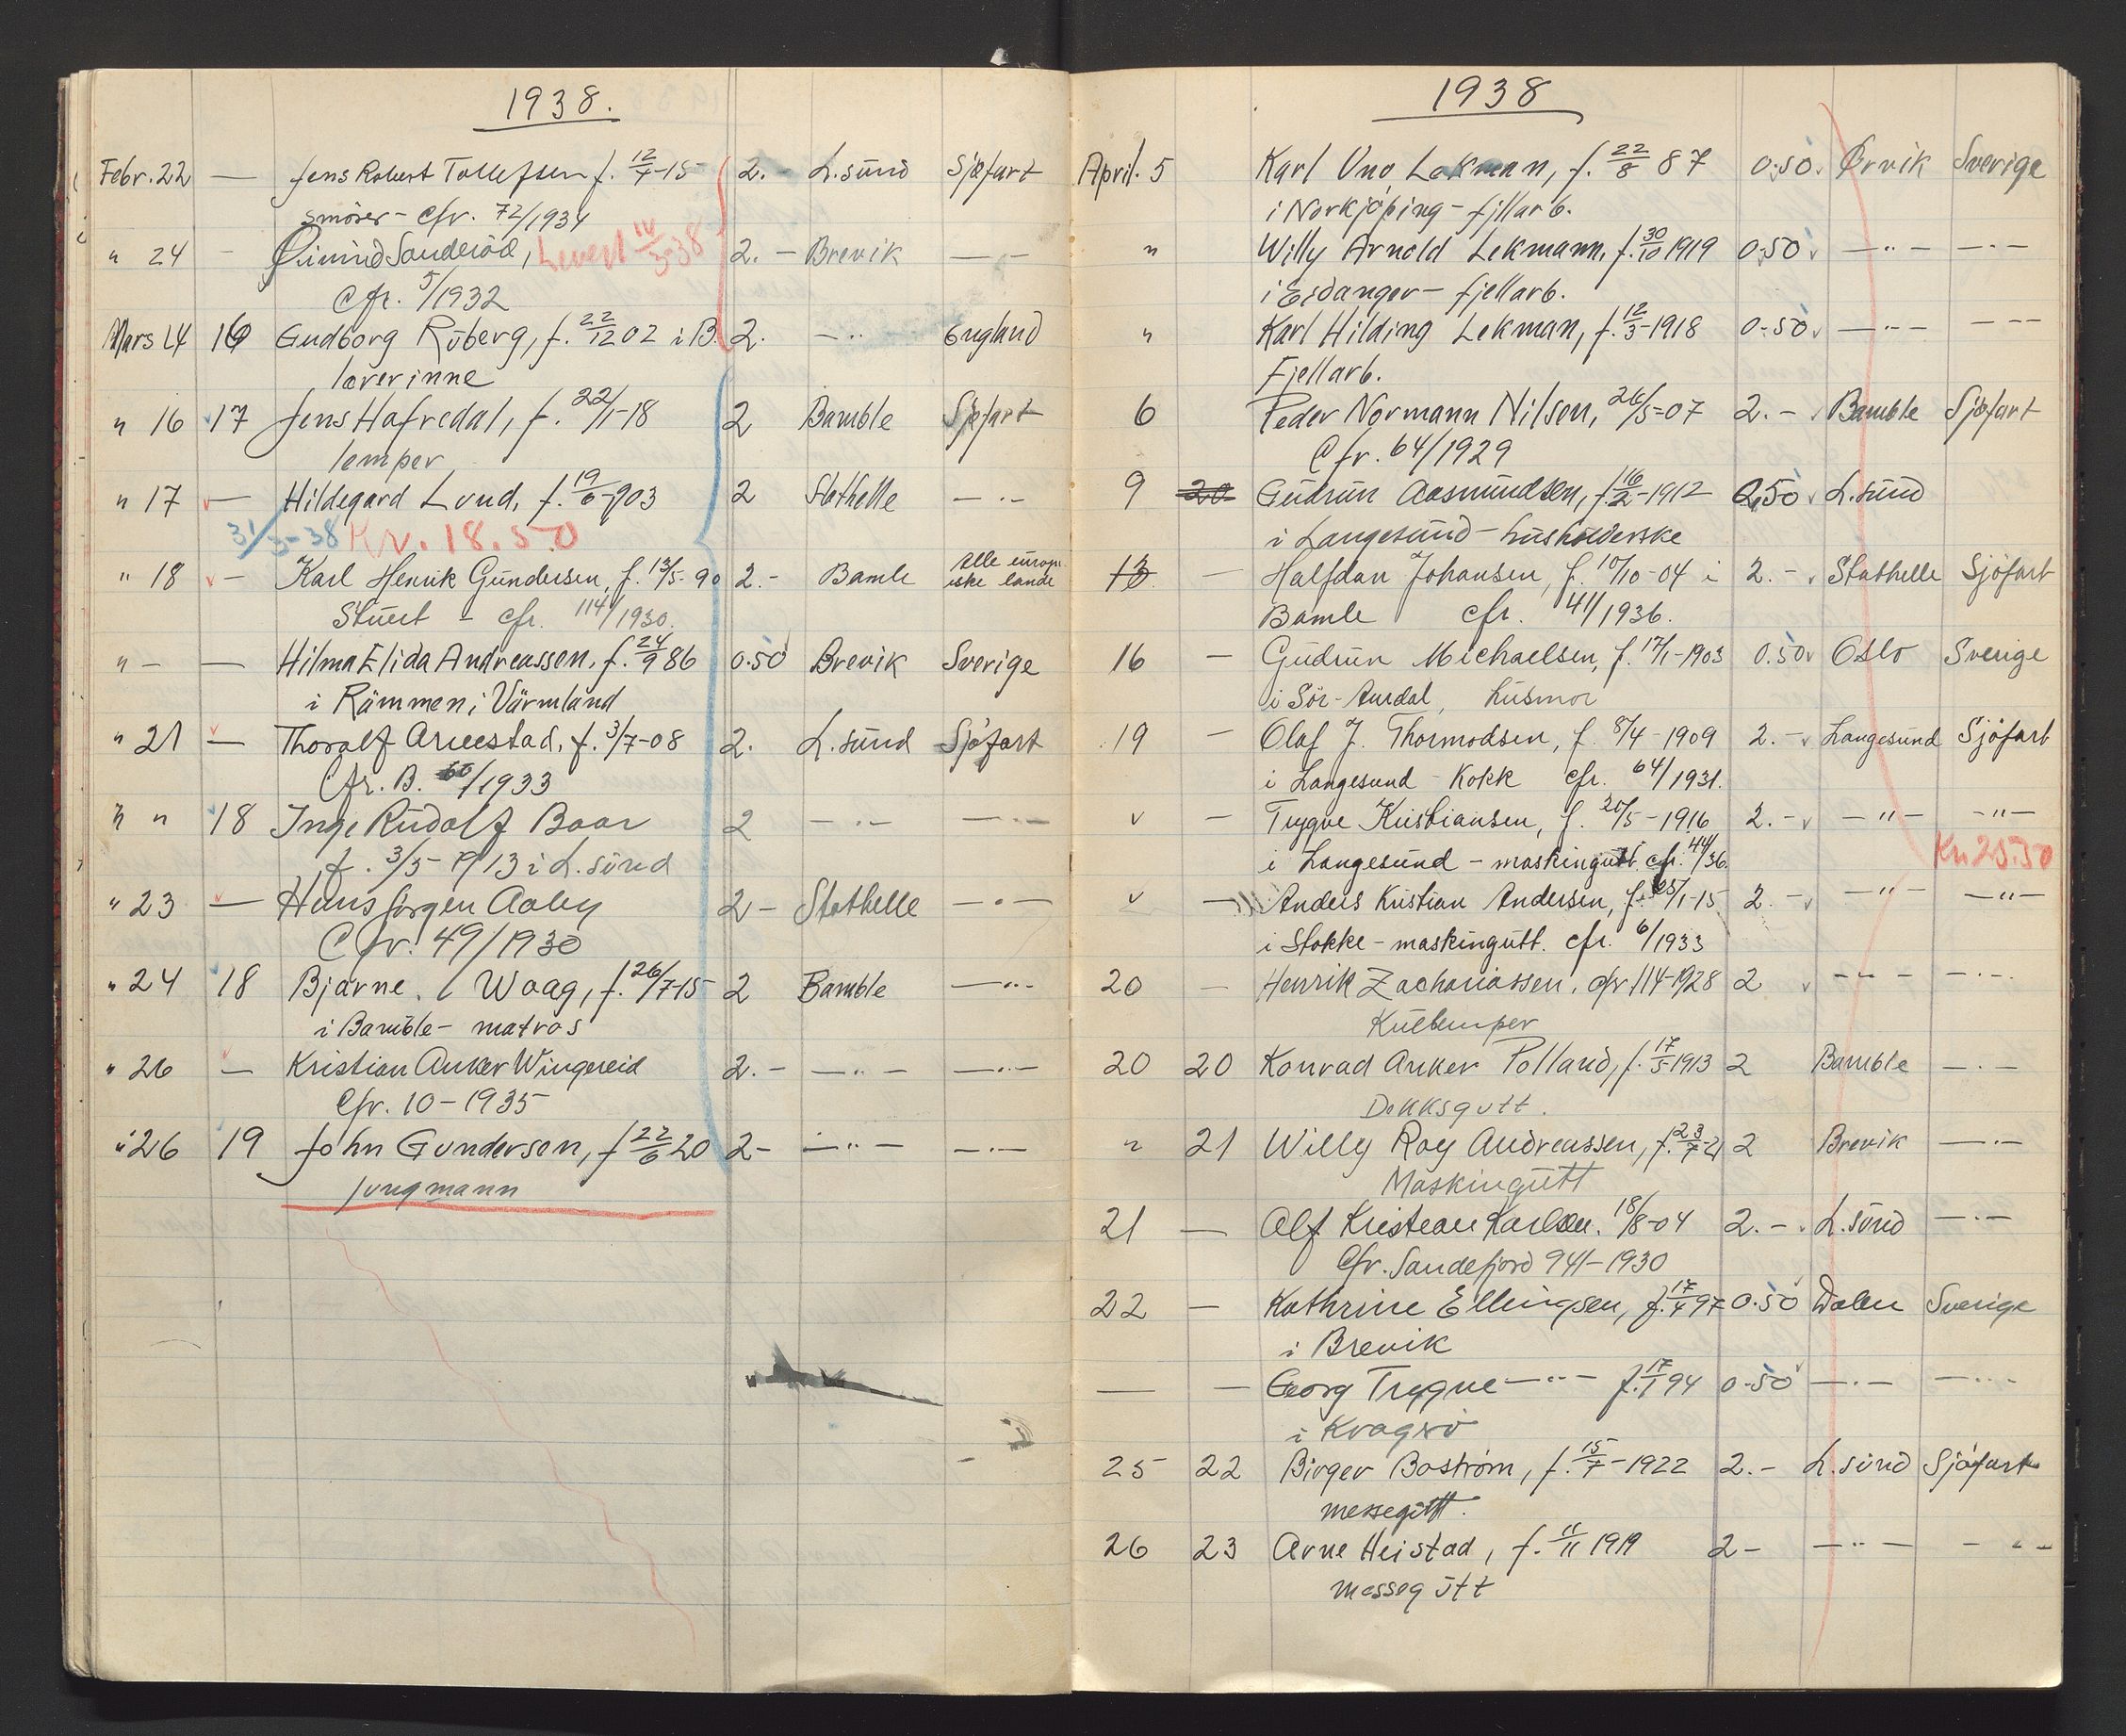 1938.
Febr. 22 — Jens Robert Tollefsen f. 12/4-15 2.- L.sund Sjøfart
smører - Cfr. 72/1934
" 24 - Øivind Sanderöd, Levert 14/3-38 2.- Brevik — -
Cfr. 5/1932
Mars 14 16 Gudborg Röberg, f. 22/12 02 i B. 2. — " England
lærerinne
" 16 17 Jens Hafredal, f. 22/1-18 2 Bamble Sjøfart
lemper
" 17 — Hildegard Lund, f. 19/6-903 2 Stathelle — " —
31/3-38 Kr. 18.50
" 18 - Karl Henrik Gundersen, f. 13/5-90 2.- Bamle Alle europe-
iske lande
Stuert - cfr. 114/1930.
" - — Hilma Elida Andreassen, f. 24/9 86 0.50 Brevik Sverige
i Rämmen i Värmland
" 21 — Thoralf Arnestad, f. 3/7-08 2. L.sund Sjöfart
Cfr. B. 60/1933
" " 18 Inge Rudolf Baar 2 — " — — " —
f. 3/5-1913 i L.sund
" 23 — Hans Jørgen Aaby 2- Stathelle — " —
Cfr. 49/1930
" 24 18 Bjarne Waag, f. 26/7-15 2 Bamble — " —
i Bamble - matros
" 26 — Kristian Anker Wingereid 2.- — " — — " —
Cfr. 10-1935
" 26 19 John Gundersen, f 22/6 20 2- — " — — " —
jungmann
1938
April. 5 Karl Uno Lekman, f. 22/8 87 0.50. Ørvik Sverige
i Norkjøping - fjllarb.
" Willy Arnold Lekmann, f. 30/10 1919 0.50 — " — — " —
i Eidanger - fjellarb.
" Karl Hilding Lekman, f. 12/3-1918 0.50 — " — — " —
Fjellarb.
6 Peder Normann Nilsen, 26/5-07 2.- Bamble Sjöfart
Cfr. 64/1929
9 20 Gudrun Aasmundsen, f. 16/2-1912 0,50 L.sund
i Langesund - husholderske
13. — Halfdan Johansen, f. 10/10-04 i 2.- Stathelle Sjöfart
Bamle cfr. 41/1936.
16 - Gudrun Michaelsen, f. 17/1-1903 0.50 Oslo Sverige
i Sör-Aurdal, husmor
19 - Olaf J. Thormodsen, f. 8/4-1909 2.- Langesund Sjöfart
i Langesund - Kokk cfr. 64/1931.
" - Trygve Kristiansen, f. 20/5-1916 2.- — " — — " —
i Langesund - maskingutt. cfr. 44/36. Kr. 25.50
" — Anders Kristian Andersen, f. 25/1-15 2.- — " — — " —
i Stokke - maskingutt. cfr. 6/1933
20 - Henrik Zachariassen, cfr 114-1928 2 — " — — " —
Kullemper
20 20 Konrad Anker Polland, f. 17/5 1913 2 Bamble — " —
Dekksgutt.
" 21 Willy Roy Andreassen, f. 23/7-21 2 Brevik — " —
Maskingutt
21 — Alf Kristean Karlsen. 18/8-04 2.- L.sund — " —
Cfr. Sandefjord 941-1930
22 - Kathrine Ellingsen, f. 17/4 97 0.50 Dalen Sverige
i Brevik
— - Georg Trygve — " — f. 17/1 94 0.50 — " — — " —
i Kragerö
25 22 Birger Boström, f. 15/7-1922 2.- L.sund Sjöfart
messegutt.
26 23 Arne Heistad, f. 11/11 1919 2- — " — - " -
messegutt